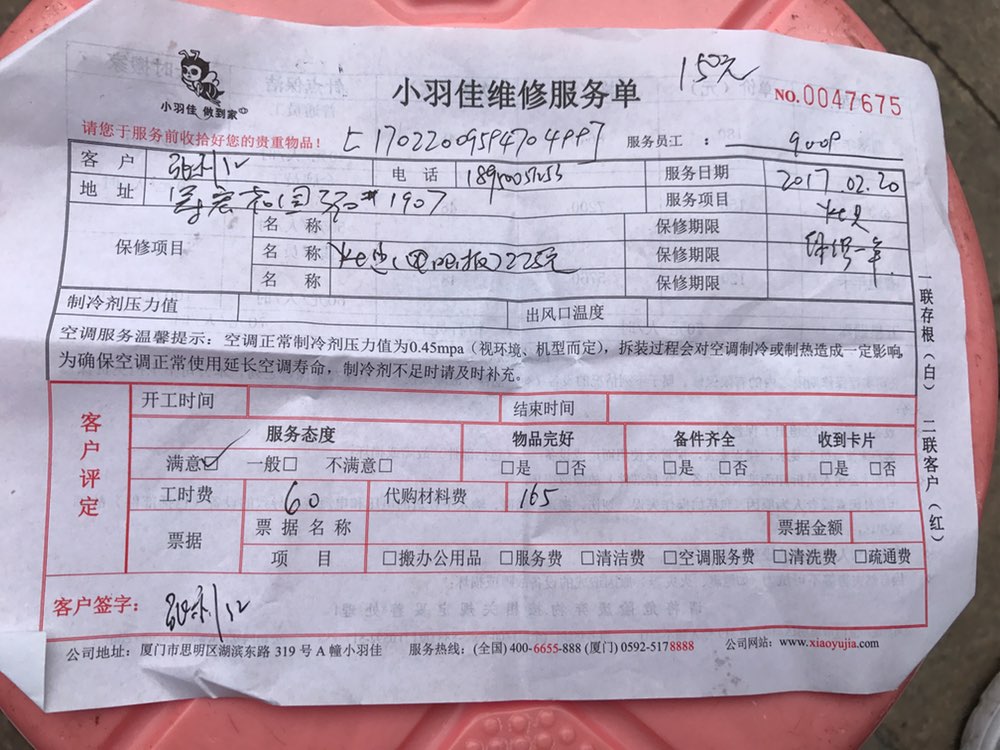 150元
小羽佳 做到家
小羽佳维修服务单
NO.0047675
请您于服务前收拾好您的贵重物品！
服务员工：
客户 电话 服务日期 2017.02.20
地址 330#1907 服务项目
保修项目 名称 保修期限
名称 (电脑板)225元 保修期限 保修一年
名称 保修期限
制冷剂压力值 出风口温度
空调服务温馨提示：空调正常制冷剂压力值为0.45mpa（视环境、机型而定），拆装过程会对空调制冷或制热造成一定影响，
为确保空调正常使用延长空调寿命，制冷剂不足时请及时补充。
客户评定
开工时间 结束时间
服务态度 物品完好 备件齐全 收到卡片
满意☑ 一般□ 不满意□ □是 □否 □是 □否 □是 □否
工时费 60 代购材料费 165
票据 票据名称 票据金额
项目 □搬办公用品 □服务费 □清洁费 □空调服务费 □清洗费 □疏通费
客户签字：
一联存根（白） 二联客户（红）
公司地址：厦门市思明区湖滨东路 319 号 A 幢小羽佳 服务热线：(全国) 400-6655-888 (厦门) 0592-5178888 公司网站：www.xiaoyujia.com